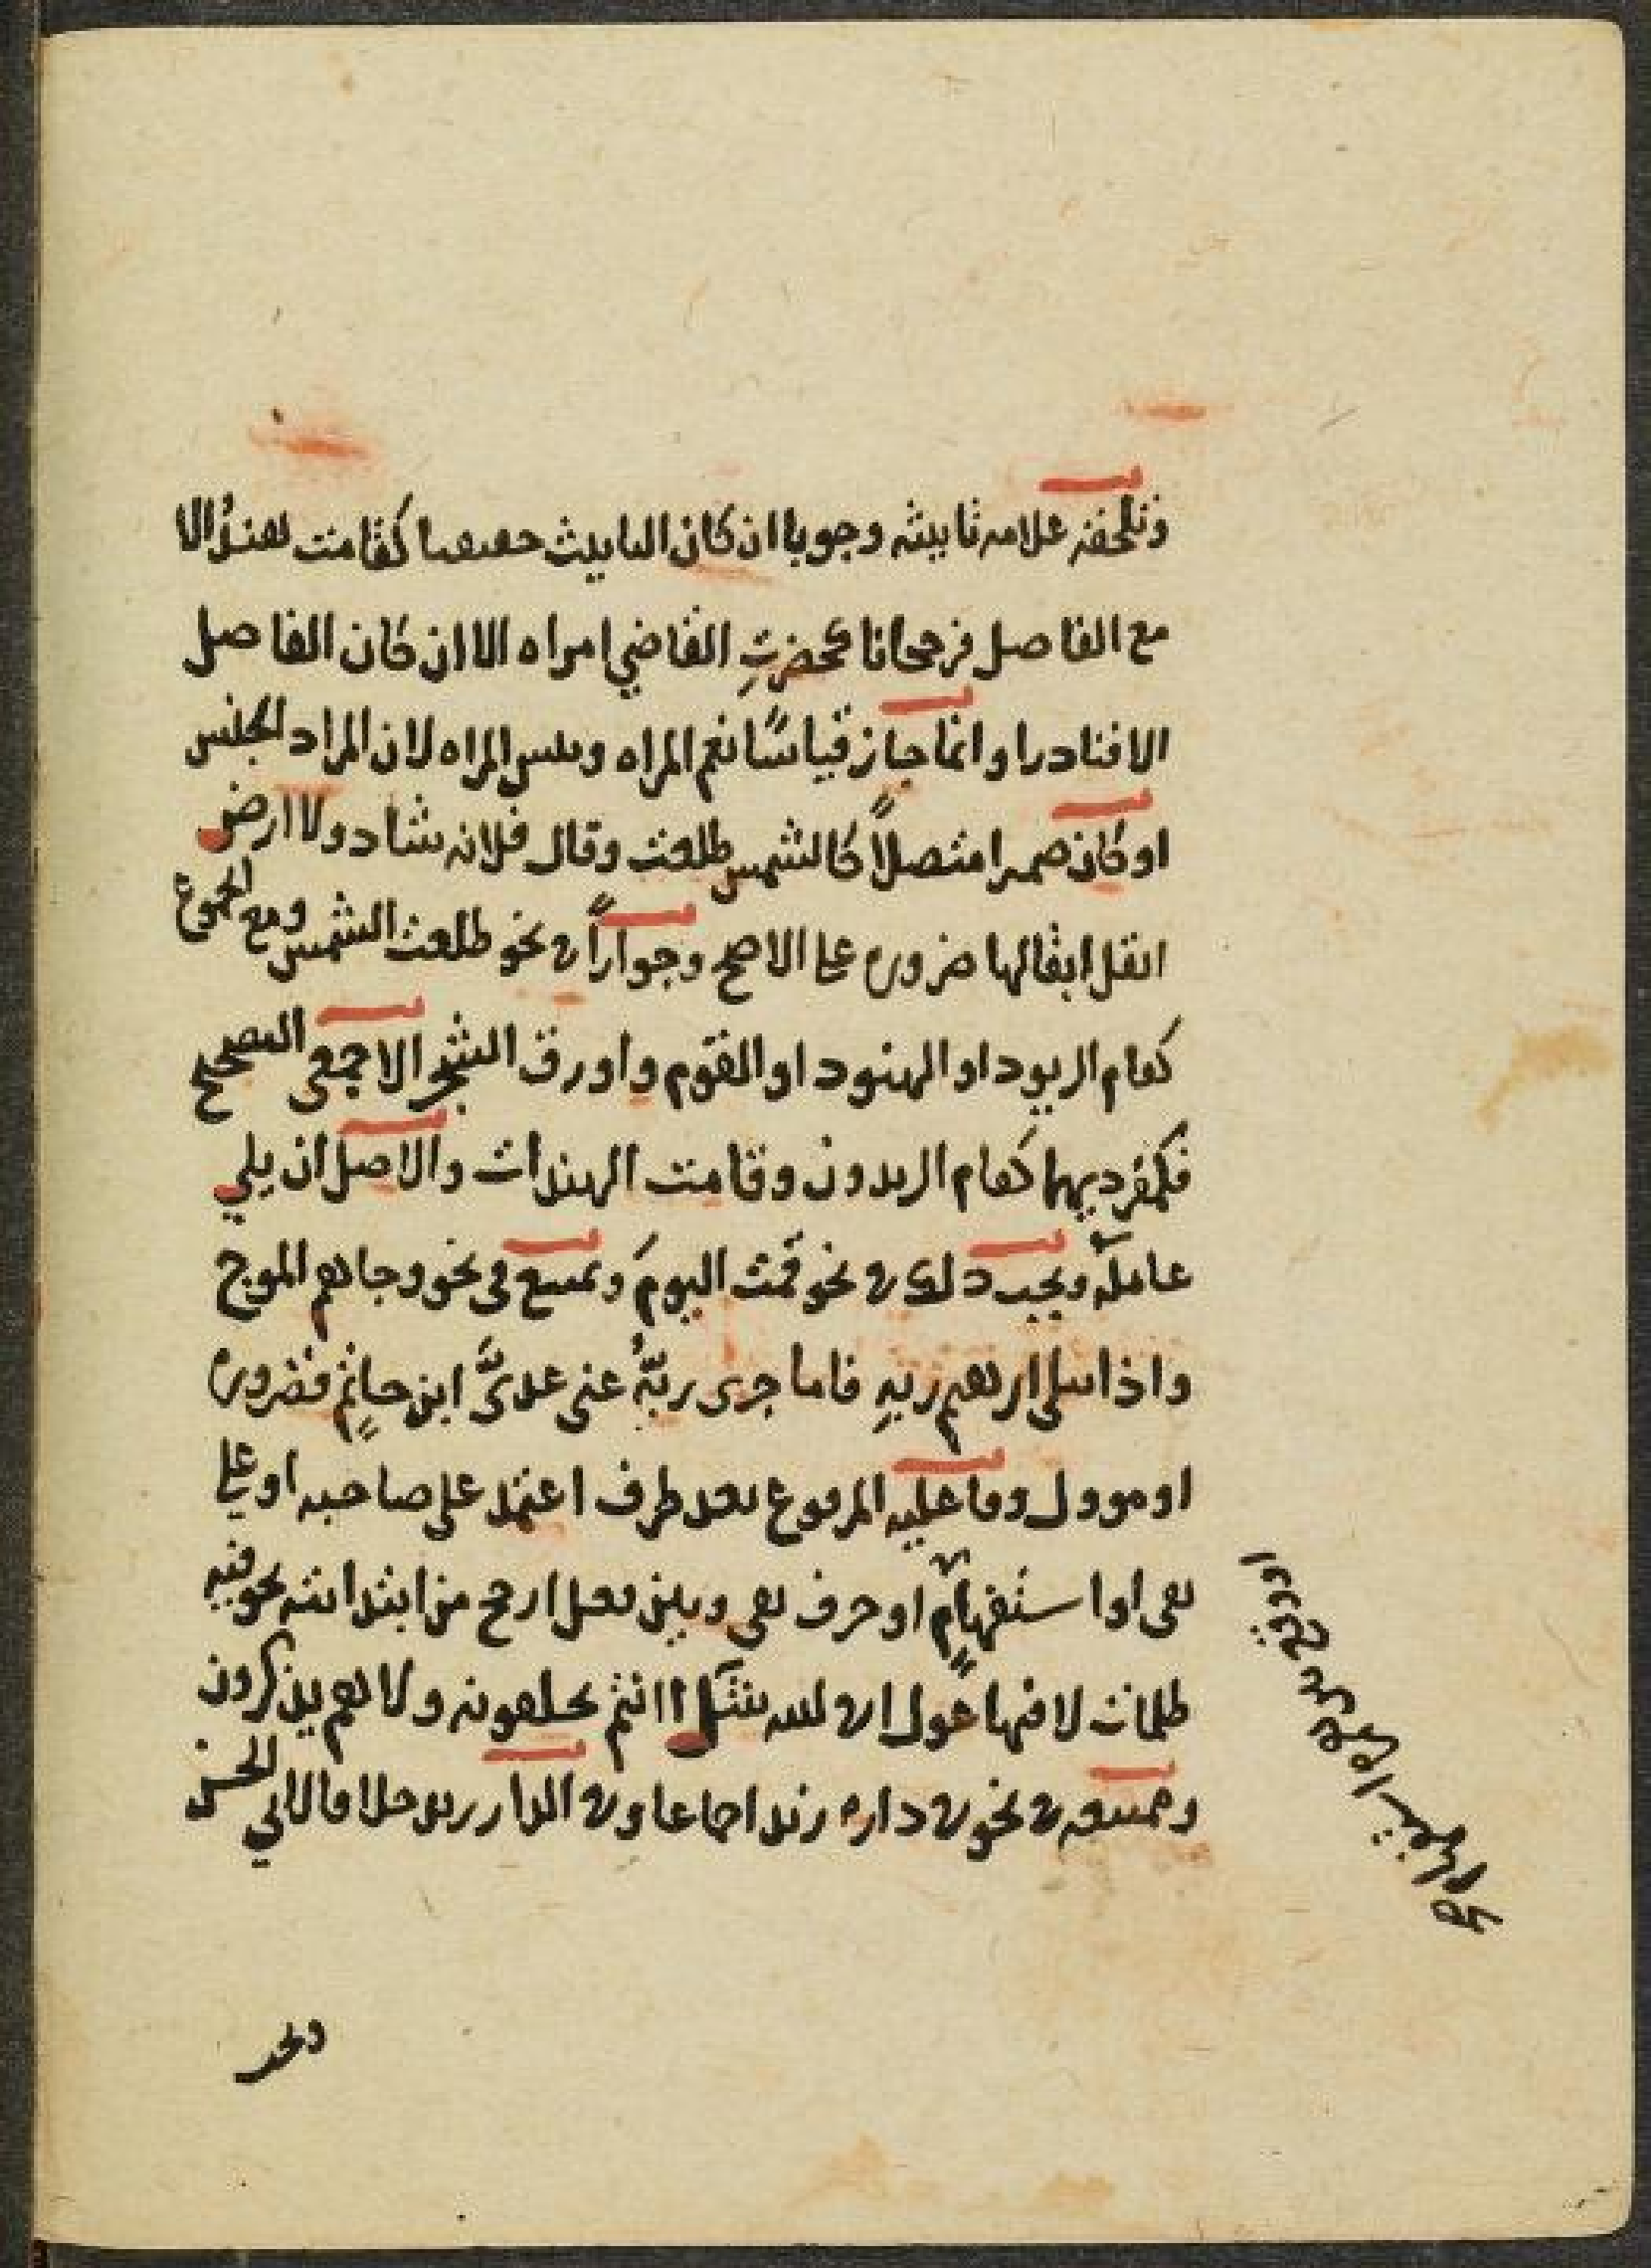 وتلحقه علامه تانيثه وجوبا ان كان التانيث حقيقيا كقامت هندُ الا
مع الفاصل فرجحانا كحضرتِ القاضي امراه الا ان كان الفاصل
الا فنادرا وانما جاز قياسًا نعم المراه وبئس المراه لان المراد الجنس
او كان ضميرا متصلاً كالشمس طلعت وقال فلانه شاد ولا ارض
ابقل ابقالها ضروره على الاصح وجوازاً في نحو طلعت الشمس ومع الجموع
كقام الزيود او الهنود او القوم واورق الشجر الا جمعي التصحيح
فكمفرديهما كقام الزيدون وقامت الهندات والاصل ان يلي
عاملَه ويجب ذلك في نحو قمت اليومَ ويمتنع في نحو وجاهم الموج
واذ ابتلى ابرهيم ربه فاما جزى ربّهُ عني عديَّ ابن حاتمٍ فضروره
او موول وفاعليه المرفوع بعد ظرف اعتمد على صاحبه او على
نفى او استفهامٍ او حرف نفى وبين فعل ارجح من ابتدائيته نحو فيه
ظلمات لا فيها غول افي الله شكٌ اانتم تخلقونه ولا هم يذكرون
وممتنعه في نحو في داره زيد اجماعا وفي الدار زيد خلافا لابي الحسن